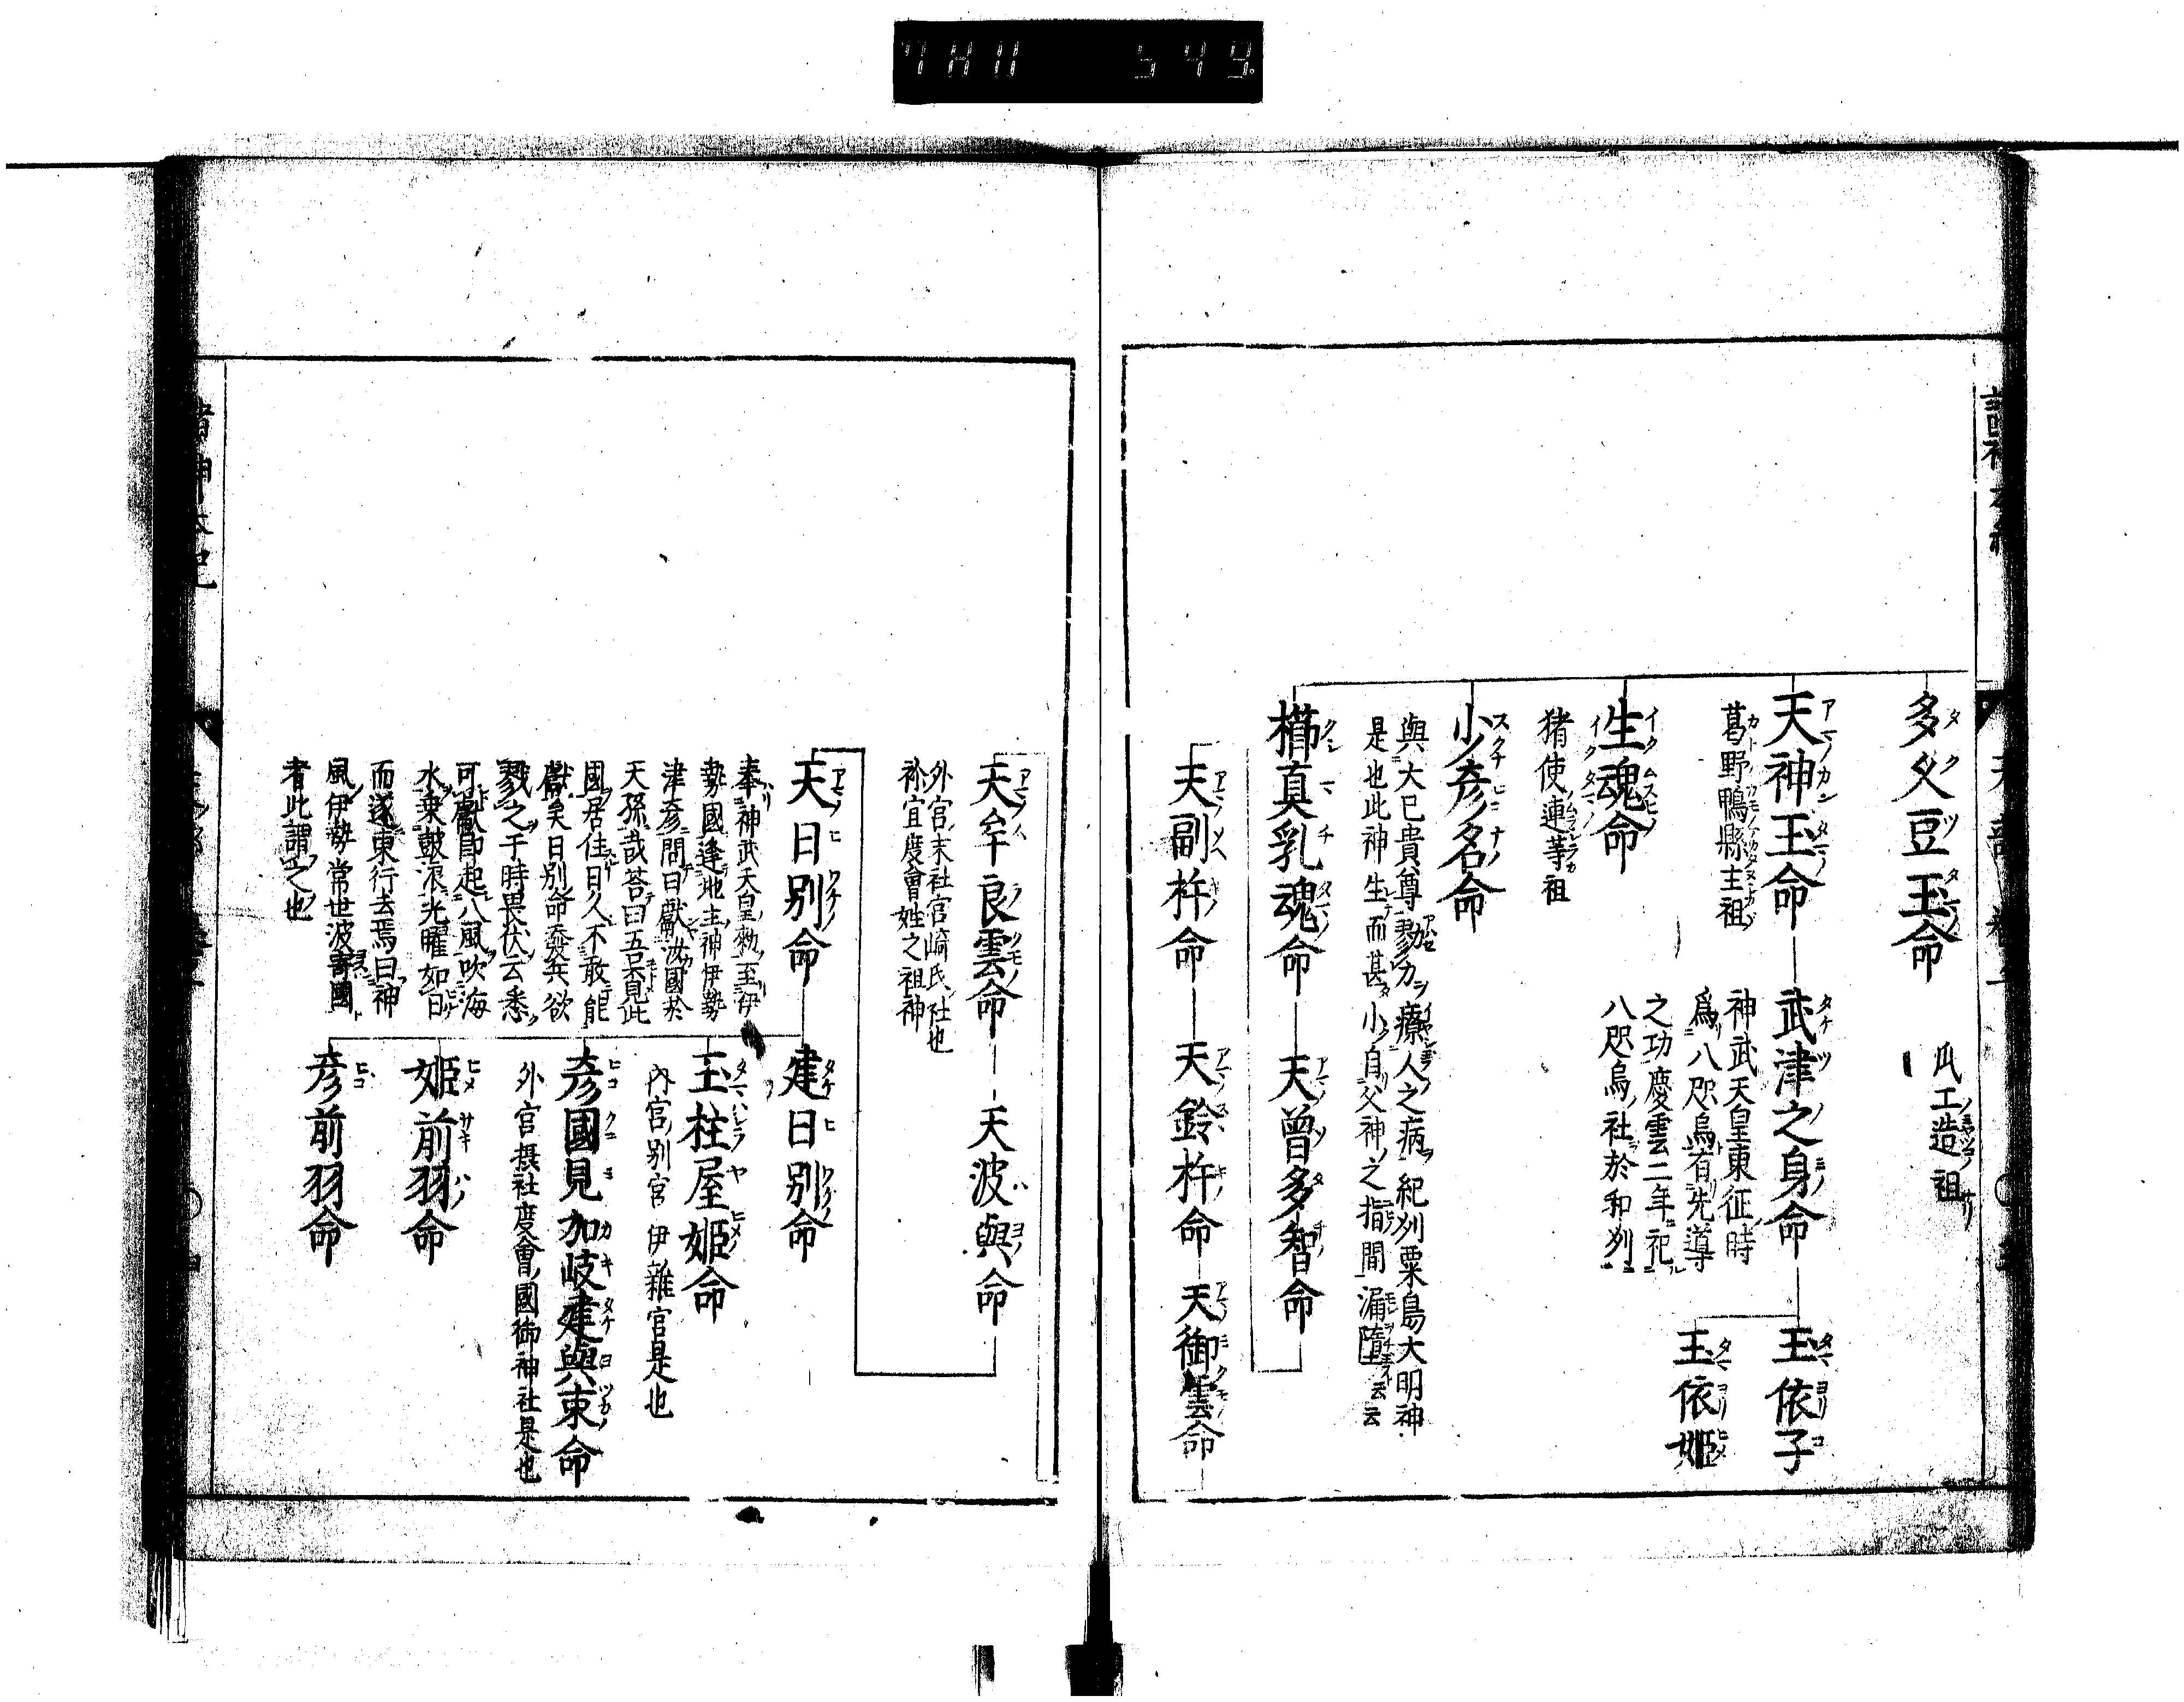 多久豆玉命
爪工造祖
天神玉命
葛野鴨縣主祖
武津之身命
神武天皇東征時
爲八咫烏有先導
之功慶雲二年祀
八咫烏社於和刕
玉依子
玉依姬
生魂命
猪使連等祖
少彥名命
與大己貴尊勠力療人之病紀刕粟島大明神
是也此神生而甚小自父神之指間漏墮云云
櫛真乳魂命
天曽多智命
天副杵命
天鈴杵命
天御雲命
天牟良雲命
外宮末社宮崎氏社也
祢宜度會姓之祖神
天波與命
天日別命
奉神武天皇勅至伊
勢國逢地主神伊勢
津彥問曰獻汝國於
天孫哉答曰吾覓此
國居住日久不敢能
獻矣日別命發兵欲
戮之于時畏伏云悉
可獻即起八風吹海
水乗皷浪光曜如日
而遂東行去焉曰神
風伊勢常世波寄國
者此謂之也
建日別命
玉柱屋姬命
內宮別宮伊雜宮是也
彥國見加岐建與束命
外宮摂社度會國御神社是也
姬前羽命
彥前羽命
諸神本紀